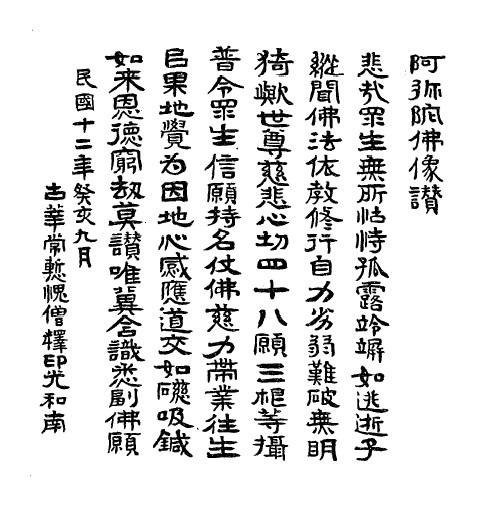 阿弥陀佛像讚
悲哉眾生無所怙恃孤露竛竮如逃逝子
縱聞佛法依教修行自力劣弱難破無明
猗歟世尊慈悲心切四十八願三根等攝
普令眾生信願持名仗佛慈力帶業往生
以果地覺為因地心感應道交如磁吸鍼
如来恩德窮劫莫讚唯冀含識悉副佛願
民國十二年癸亥九月
古莘常慙愧僧釋印光和南